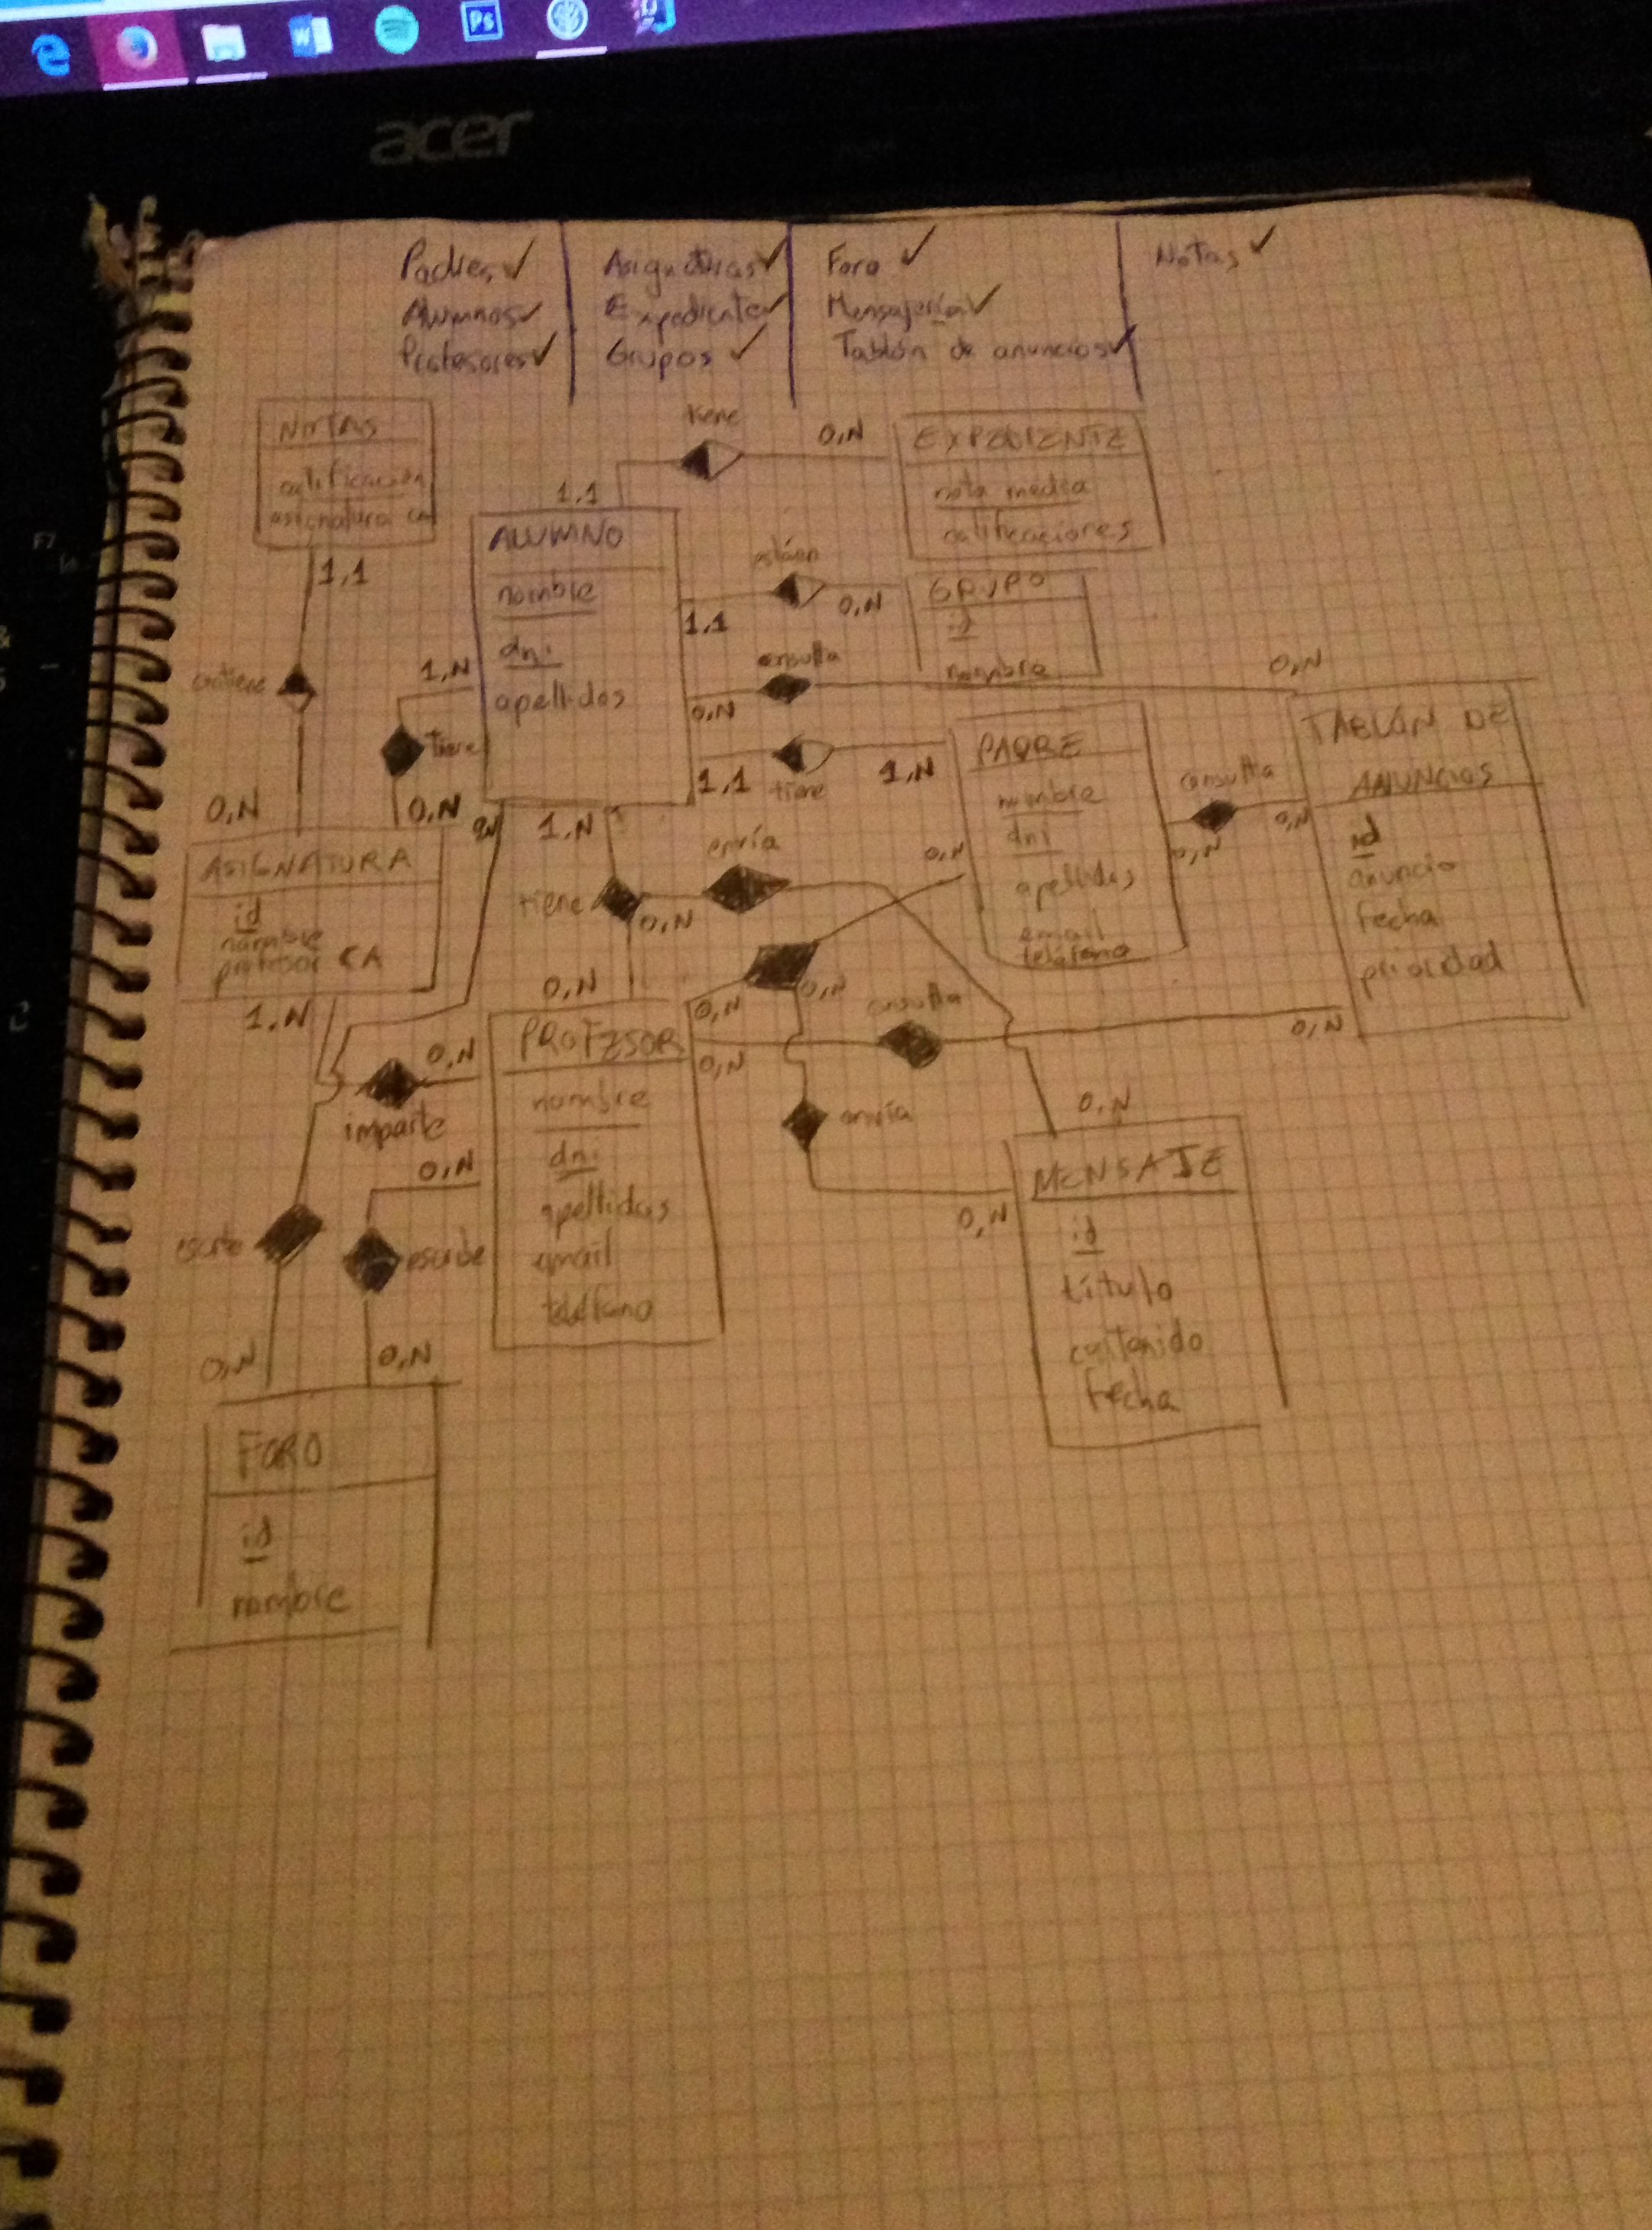 Ps
acer
Padres ✓
Alumnos ✓
Profesores ✓
Asignaturas ✓
Expediente ✓
Grupos ✓
Foro ✓
Mensajería ✓
Tablón de anuncios ✓
Notas ✓
NOTAS
calificación
asignatura CA
1,1
0,N
tiene
1,1
0,N
EXPEDIENTE
nota media
calificaciones
ALUMNO
nombre
dni
apellidos
1,1
0,N
GRUPO
id
nombre
consulta
0,N
0,N
1,1
tiene
1,N
PADRE
nombre
dni
apellidos
email
teléfono
consulta
0,N
0,N
TABLÓN DE
ANUNCIOS
id
anuncio
fecha
prioridad
1,N
tiene
0,N
ASIGNATURA
id
nombre
profesor CA
1,N
0,N
imparte
0,N
1,N
tiene
0,N
0,N
envía
0,N
0,N
0,N
PROFESOR
nombre
dni
apellidos
email
teléfono
0,N
consulta
0,N
envía
0,N
0,N
MENSAJE
id
título
contenido
fecha
0,N
escribe
0,N
0,N
FORO
id
nombre